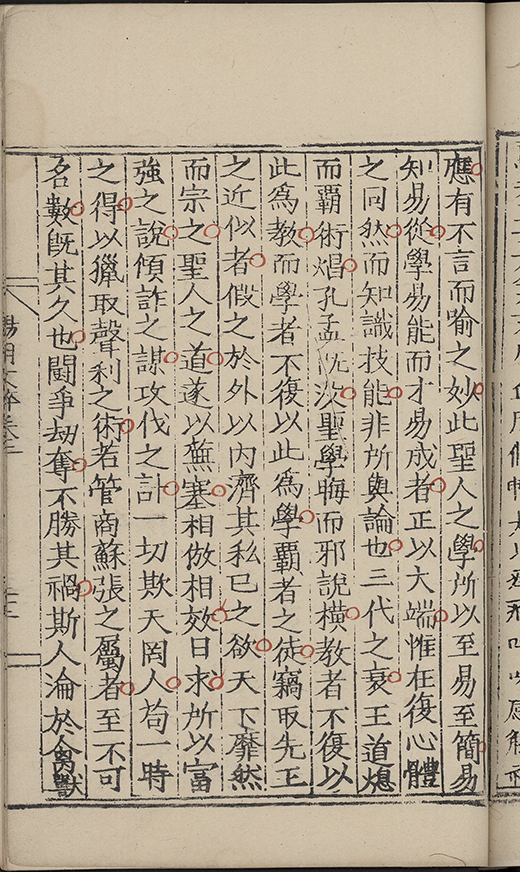 應有不言而喻之妙此聖人之學所以至易至簡易
知易從學易能而才易成者正以大端惟在復心體
之同然而知識技能非所與論也三代之衰王道熄
而霸術焻孔孟旣沒聖學晦而邪說橫教者不復以
此爲教而學者不復以此爲學霸者之徒竊取先王
之近似者假之於外以內濟其私已之欲天下靡然
而宗之聖人之道遂以蕪塞相倣相效日求所以富
強之說傾詐之謀攻伐之計一切欺天罔人苟一時
之得以獵取聲利之術若管商蘇張之屬者至不可
名數旣其久也鬪爭劫奪不勝其禍斯人淪於禽獸
陽明文粹卷三